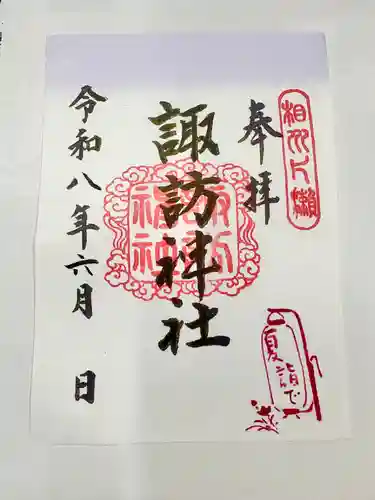 相州片瀬
奉拝
諏訪神社
令和八年六月 日
夏詣で